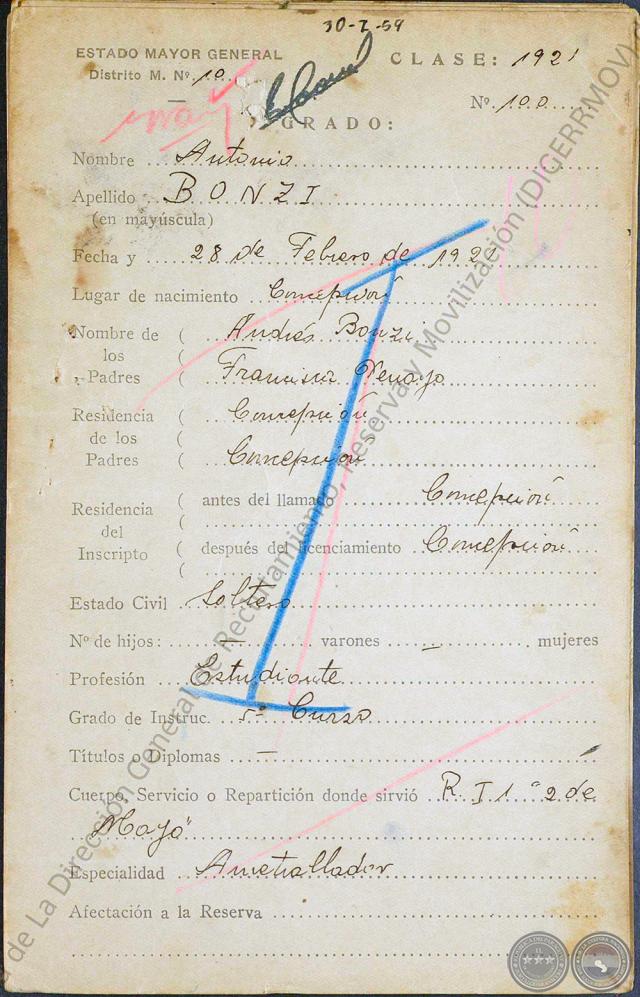 30-7-59
ESTADO MAYOR GENERAL
CLASE: 1921
Distrito M. Nº. 10
Nº 100
GRADO:
Nombre Antonio
Apellido BONZI
(en mayúscula)
Fecha y 28 de Febrero de 1921
Lugar de nacimiento Concepción
Nombre de ( Andrés Bonzi
los (
Padres ( Francisca
Residencia ( Concepción
de los (
Padres ( Concepción
Residencia ( antes del llamado Concepción
del (
Inscripto ( después del licenciamiento Concepción
(
Estado Civil Soltero
Nº de hijos: — varones — mujeres
Profesión Estudiante
Grado de Instruc. 5º Curso
Títulos o Diplomas —
Cuerpo, Servicio o Repartición donde sirvió R.I 1 "2 de
Mayo"
Especialidad Ametrallador
Afectación a la Reserva
de La Dirección General de Reclutamiento, Reserva y Movilización (DIGERRMOV)